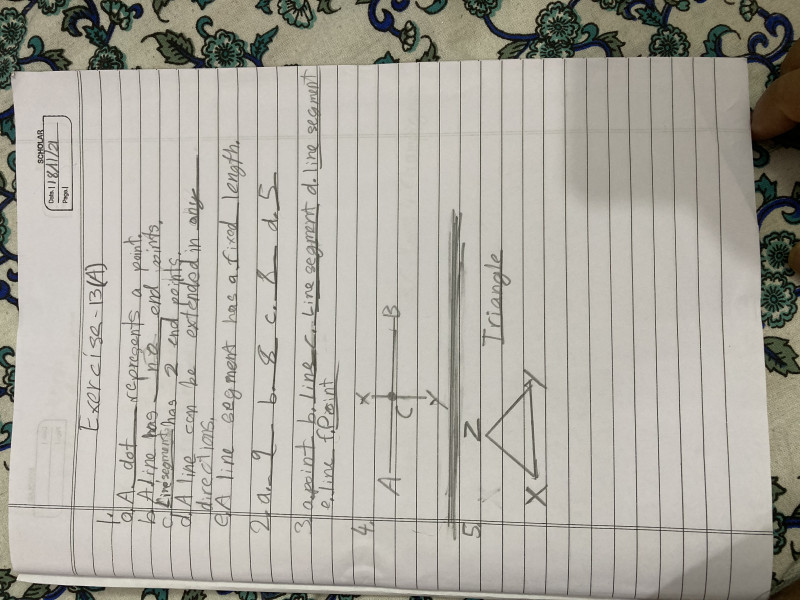 SCHOLAR
Date 18/1/21
Page
Exercise-13(A)
1.
a. A dot represents a point.
b. A line has no end points.
c. Line segment has 2 end points.
d. A line can be extended in any
directions.
e. A line segment has a fixed length.
2. a. 9 b. 8 c. 8 d. 5
3. a. point b. line c. Line segment d. line segment
e. line f. Point
4.
X
A B
C
Y
5. Triangle
Z
X Y